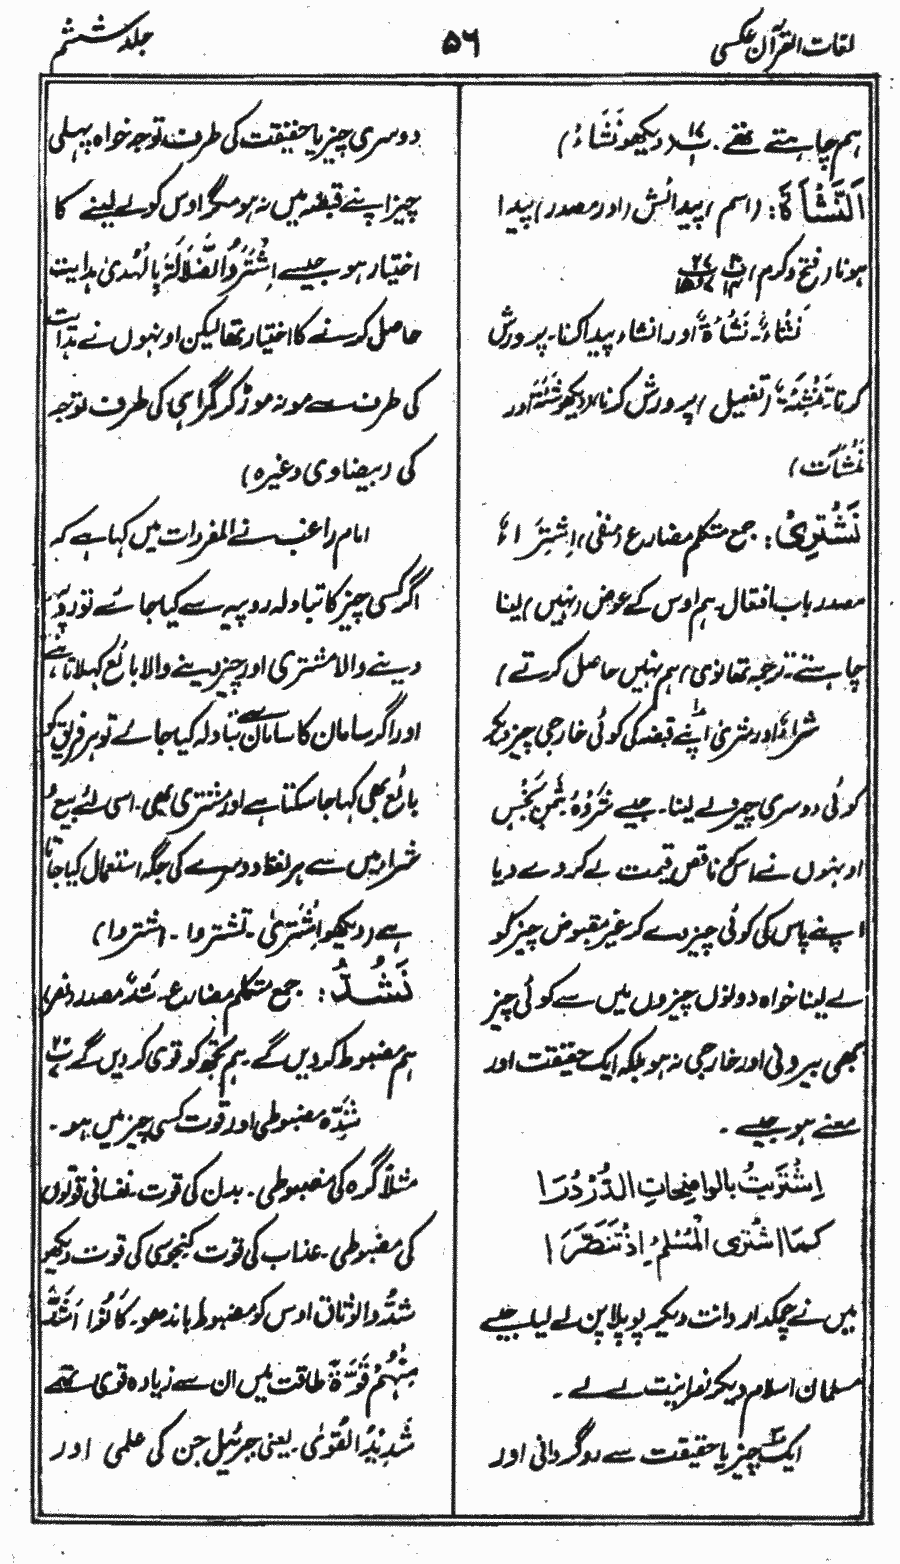 لغات القرآن عکسی
۵۶
جلد ششم
ہم چاہتے تھے۔ (دیکھو نَشَاءُ)
اَلنَّشْأَةَ: (اسم) پیدائش (اور مصدر) پیدا
ہونا (فتح و کرم)
نَشْاءٌ۔ نَشَاءَةٌ اور انشاء پیدا کرنا۔ پرورش
کرنا۔ تَنْشِئَةٌ (تفعیل) پرورش کرنا (دیکھو اور
نَشَأَت)
نَشْتَرِیْ: جمع متکلم مضارع (منفی) اِشْتِرَاءٌ
مصدر باب افتعال۔ ہم اوس کے عوض (نہیں) لینا
چاہتے۔ ترجمہ تھانوی (ہم نہیں حاصل کرتے)
شراءٌ اور شریٰ اپنے قبضہ کی کوئی خارجی چیز دیکر
کوئی دوسری چیز لے لینا۔ جیسے شَرَوْهُ بِثَمَنٍ بَخْسٍ
اونہوں نے اسکو ناقص قیمت لے کر دے دیا
اپنے پاس کی کوئی چیز دے کر غیر مقبوض چیز کو
لے لینا خواہ دونوں چیزوں میں سے کوئی چیز
بھی بیرونی اور خارجی نہ ہو بلکہ ایک حقیقت اور
معنے ہو جیسے۔
اِشْتَرَیْتُ بالواضِحاتِ الدُّرْدُرَا
کما اشْتَرَی الْمُسْلِمُ اِذْ تَنَصَّرَا
میں نے چمکدار دانت دیکر پوپلا پن لے لیا۔ جیسے
مسلمان اسلام دیکر نصرانیت لے لے۔
ایک چیز یا حقیقت سے روگردانی اور
دوسری چیز یا حقیقت کی طرف توجہ خواہ پہلی
چیز اپنے قبضہ میں نہ ہو مگر اوس کو لے لینے کا
اختیار ہو جیسے اِشْتَرَوُا الضَّلَالَةَ بِالْهُدیٰ ہدایت
حاصل کرنے کا اختیار تھا لیکن اونہوں نے ہدایت
کی طرف سے مونہ موڑ کر گمراہی کی طرف توجہ
کی (بیضاوی وغیرہ)
امام راغب نے المفردات میں کہا ہے کہ
اگر کسی چیز کا تبادلہ روپیہ سے کیا جائے تو روپیہ
دینے والا مشتری اور چیز دینے والا بائع کہلاتا ہے،
اور اگر سامان کا سامان سے تبادلہ کیا جائے تو ہر فریق کو
بائع بھی کہا جا سکتا ہے اور مشتری بھی۔ اسی لئے بیع اور
شراء میں سے ہر لفظ دوسرے کی جگہ استعمال کیا جاتا
ہے (دیکھو اِشْتَریٰ۔ تشتروا۔ اشتروا)
نَشُدُّ: جمع متکلم مضارع۔ شَدٌّ مصدر (نصر)
ہم مضبوط کر دیں گے۔ ہم تجھ کو قوی کر دیں گے
شِدَّۃ مضبوطی اور قوت کسی چیز میں ہو۔
مثلاً گرہ کی مضبوطی۔ بدن کی قوت۔ نفسانی قوتوں
کی مضبوطی۔ عذاب کی قوت کنجوسی کی قوت دیکھو
شدُّوا الوثاق اوس کو مضبوط باندھو۔ کَانُوْا اَشَدَّ
مِنْهُمْ قُوَّةً طاقت میں ان سے زیادہ قوی تھے
شَدِیْدُ الْقُوٰی۔ یعنی جبرئیل جن کی علمی اور